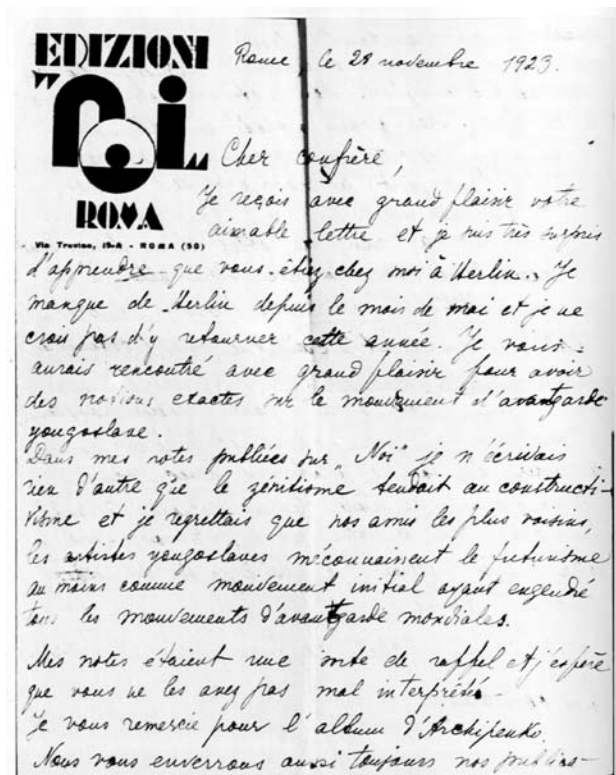 EDIZIONI
"NOI
ROMA
Via Tronto, 89-A - ROMA (50)
Rome, le 28 novembre 1923.
Cher confrère,
Je reçois avec grand plaisir votre
aimable lettre et je suis très surpris
d'apprendre que vous étiez chez moi à Berlin. Je
manque de Berlin depuis le mois de mai et je ne
crois pas d'y retourner cette année. Je vous
aurais rencontré avec grand plaisir pour avoir
des notions exactes sur le mouvement d'avantgarde
yougoslave.
Dans mes notes publiées sur „Noi" je n'écrivais
rien d'autre que le zénitisme tendait au constructi-
visme et je regrettais que nos amis les plus voisins,
les artistes yougoslaves méconnaissent le futurisme
au moins comme mouvement initial ayant engendré
tous les mouvements d'avantgarde mondiales.
Mes notes étaient une sorte de rappel et j'espère
que vous ne les avez pas mal interprété.
Je vous remercie pour l'album d'Archipenko.
Nous vous enverrons aussi toujours nos publica-